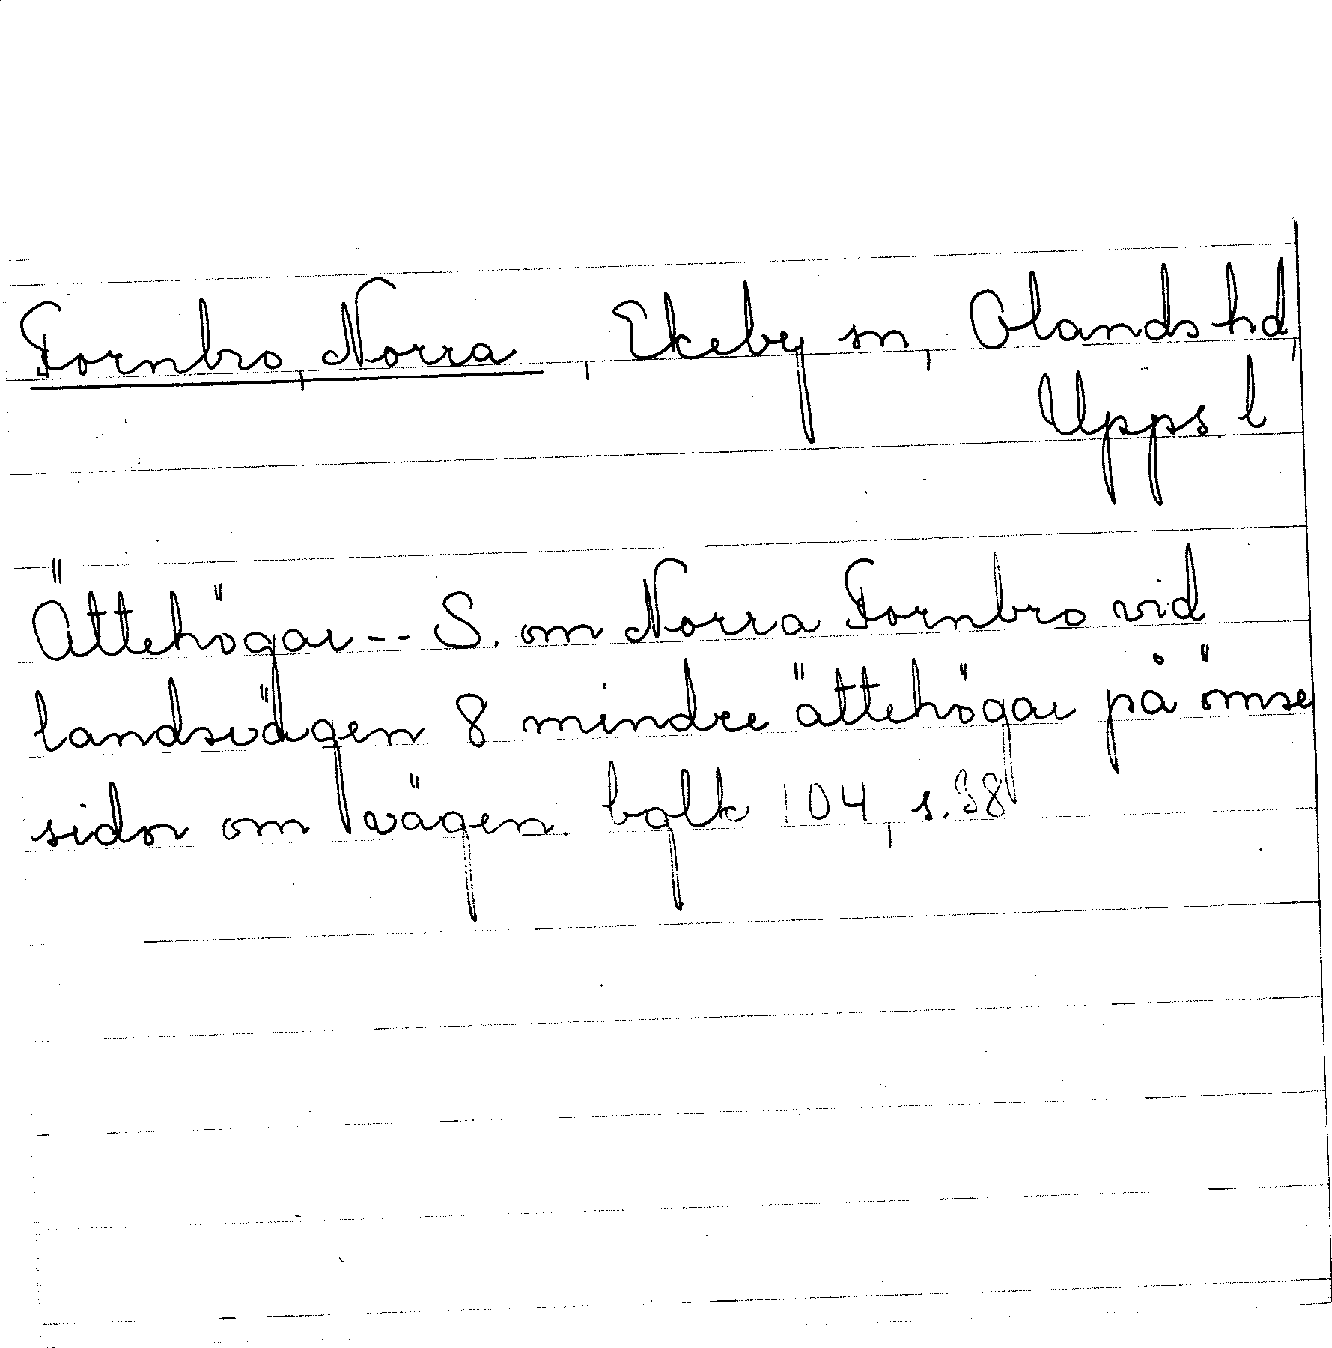 Fornbro, Norra, Ekeby sn, Olands hd,
Upps l
Ättehögar-- S. om Norra Fornbro vid
landsvägen 8 mindre ättehögar på ömse
sidor om vägen. bqlk 104, s. 38